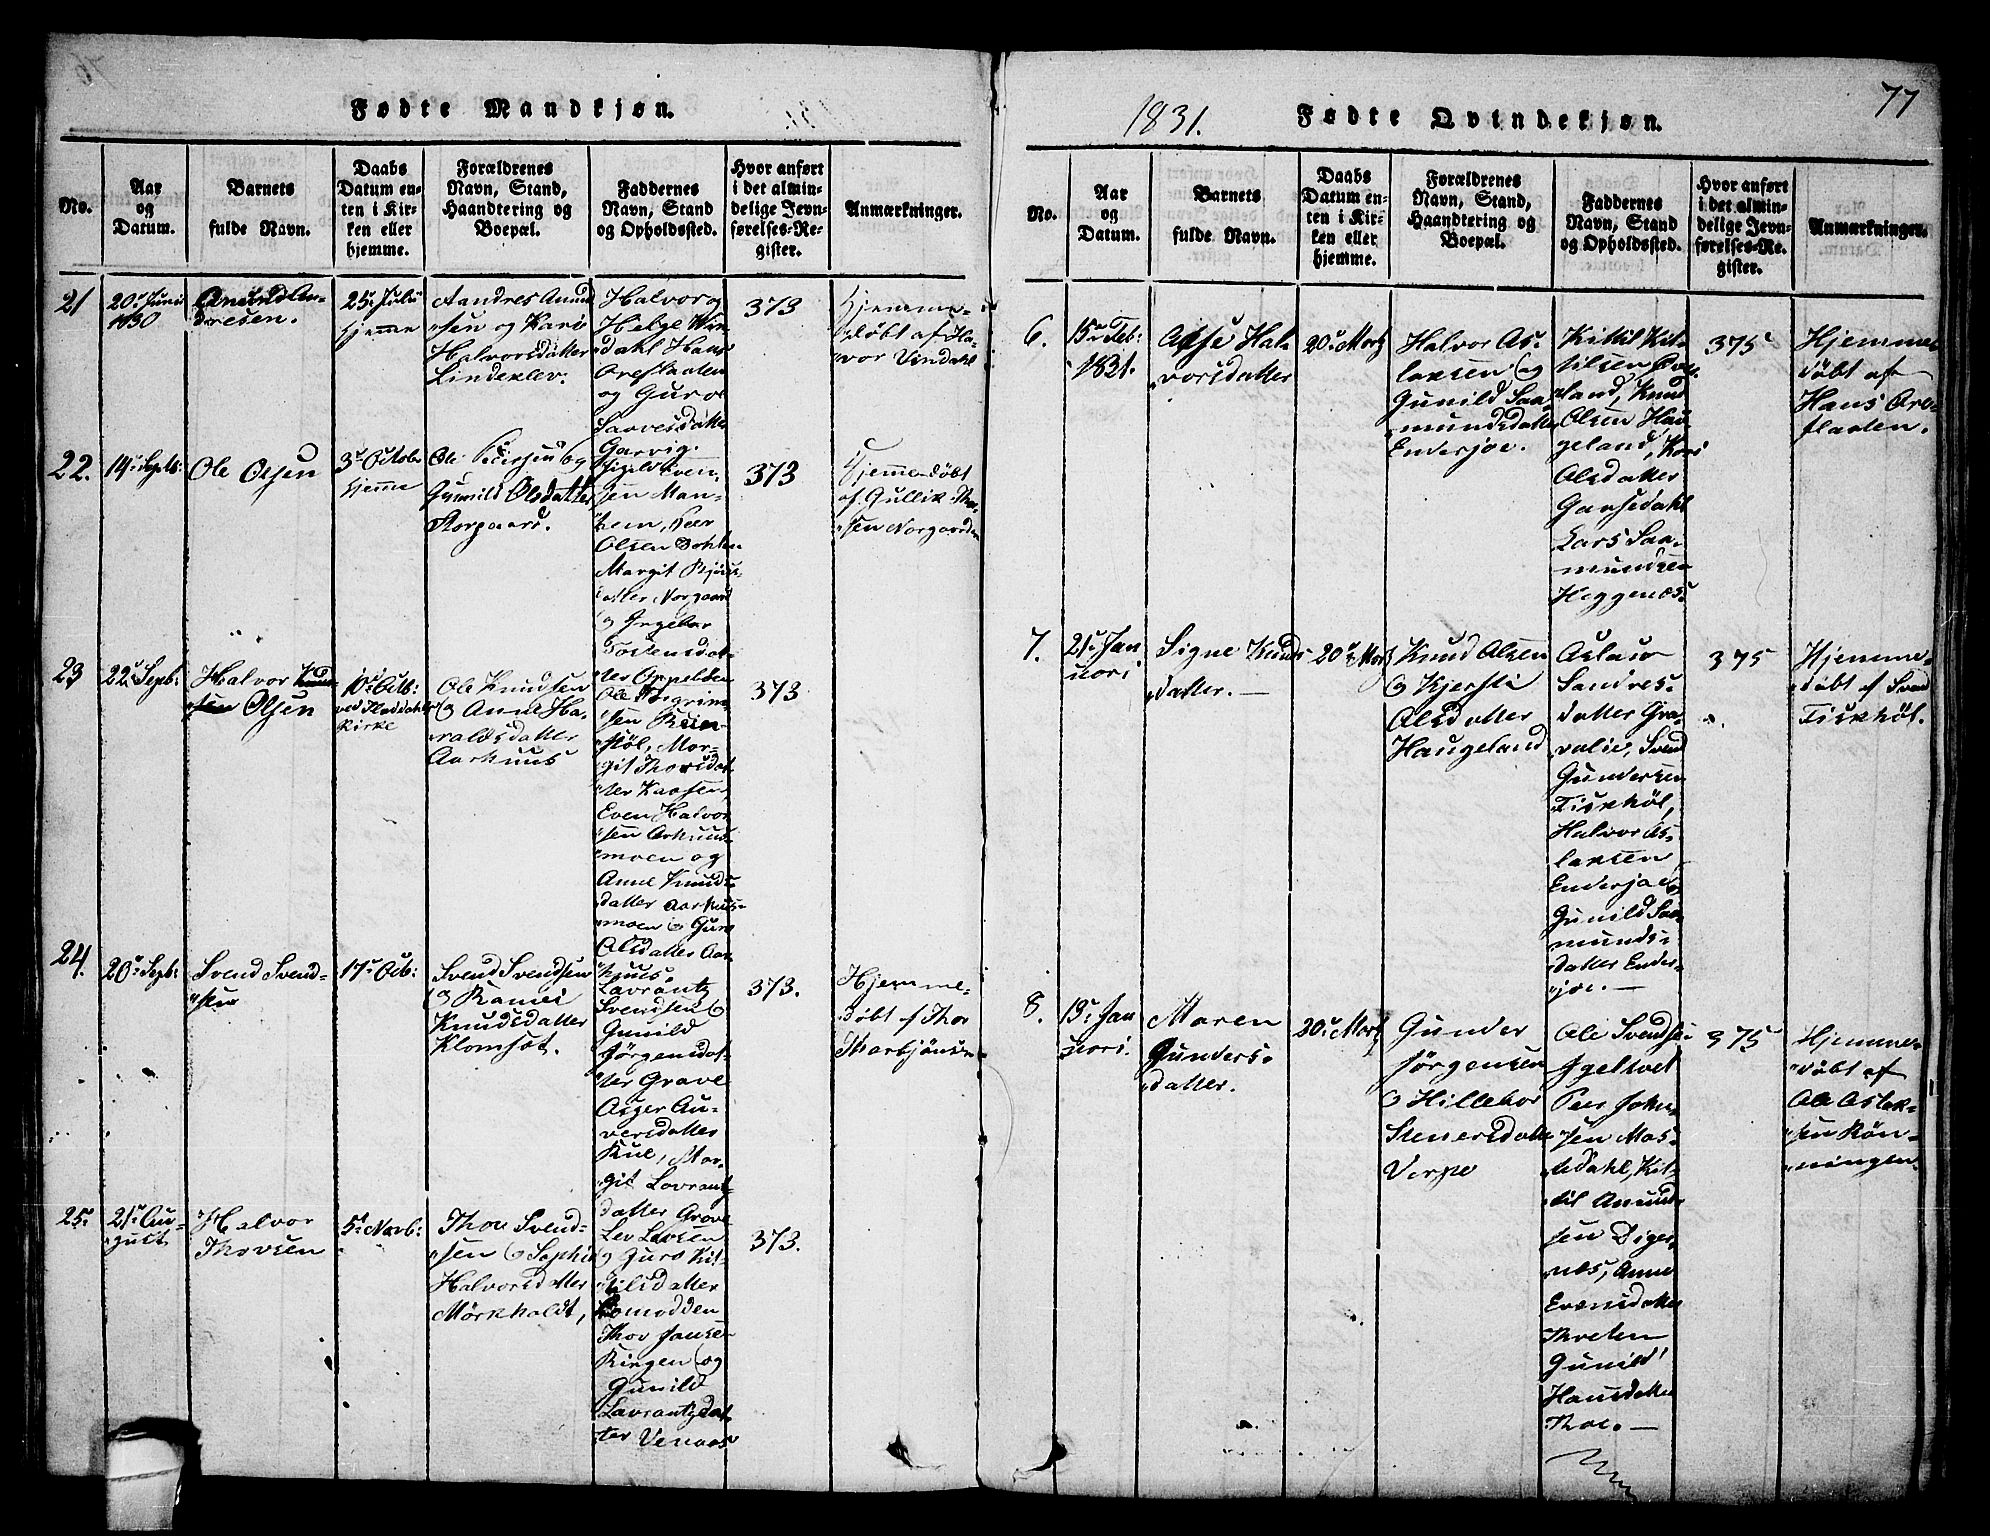 Fødte Mandkjøn.
No.
Aar
og
Datum.
Barnets
fulde Navn.
Daabs
Datum en-
ten i Kir-
ken eller
hjemme.
Forældrenes
Navn, Stand,
Haandtering og
Boepæl.
Faddernes
Navn, Stand
og Opholdssted.
Hvor anført
i det almin-
delige Jevn-
førelses-Re-
gister.
Anmærkninger.
21
20de Juni
1830
Amund An-
dresen.
25de Julii
hjemme
Aandres Amund
sen og Kari
Halvorsdatter
Lindeklev.
Halvor og
Helge Vin-
dahl Hans
Oreflaaten
og Guro
Sarvesdatter
Garvig.
373
Hjemme-
døbt af Ha-
vor Vindahl
22.
14de Septb:
Ole Olsen
3de Octobr
hjemme
Ole
og
Gunnild Olsdatter
Norgaard.
Even-
sen Man-
hem, Peer
Olsen Dohlen
Margit
datter Norgaard
og Ingebor
Tovensdat-
ter Oppebøen
373
Hjemmedøbt
af Gullik Thor-
sen Norgaarden
23
22de Septb:
Halvor Knud-
sen Olsen
10de Octb:
ved Fladdahls
Kirke
Ole Knudsen
og Anne Ha-
raldsdatter
Aarhuus
Ole Torgrim-
sen Ruen-
støl, Mar-
git Thorsdat-
ter Kaasen,
Even Halvor
sen Aarhuus-
moen og
Anne Knuds-
datter Aarhuus-
moen og Guro
Olsdatter Aar-
huus.
373
24.
20de Septb:
Svend Svend-
sen
17de Octb:
Svend Svendsen
og Ramei
Knudsdatter
Klomset.
Lavrantz
Svendsen og
Gunild
Jørgensdat-
ter Grave
Asger Au-
versdatter
Kile, Mar-
git Lavrantz-
datter Grave
373.
Hjemme-
døbt af Thor
Thorbjönsen
25.
21de Au-
gust
Halvor
Thovsen
5te Novb:
Thov Svend-
sen og Sophie
Halvorsdatter
Mörkholdt,
Lev Levsen
og Juro Kit-
tilsdatter
Romodden
Thov Janse
Ringen og
Gunild
Lavrantzdat
ter Venaas
373.
1831.
Fødte Qvindekjøn.
77
No.
Aar
og
Datum.
Barnets
fulde Navn.
Daabs
Datum en-
ten i Kir-
ken eller
hjemme.
Forældrenes
Navn, Stand,
Haandtering og
Boepæl.
Faddernes
Navn, Stand
og Opholdssted.
Hvor anført
i det almin-
delige Jevn-
førelses-Re-
gister.
Anmærkninger.
6.
15de Feb:
1831.
Aase Hal-
vorsdatter
20de Martz
Halvor As-
laksen og
Gunild Saa-
mundsdatter
Endersjoe.
Kittil Kit-
tilsen
land, Knud
Olsen Hau-
geland, Kari
Olsdatter
Gaasedahl
Lars Saa-
mundsen
Heggenæs.
375
Hjemme
døbt af
Hans Ore-
flaaten.
7.
21de Jan
uari
Signe Knuds
datter.
20de Martz
Knud Olsen
og Kjersti
Olsdatter
Haugeland
Aslaug
Sandres-
datter Gra-
valie, Svend
Gundersen
Tiskhöl,
Halvor As-
laksen
Endersjoe og
Gunild Saa-
munds-
datter Ender-
sjoe.
375
Hjemme-
døbt af Svend
Tiskhöl.
8.
13de Jan
uari.
Maren
Gunders-
datter.
20de Martz
Gunder
Jörgensen
og Hillebor
Stenersdatter
Verpe
Ole Svendsen
Igeltvet
Peer John-
sen Mos-
sedahl, Kit-
til Amund
sen Diger-
næs, Anne
Evensdatter
Thveten
Gunild
Hansdatter
Thoe.
375
Hjemme-
døbt af
Ole Aslak-
sen Rön-
ningen.